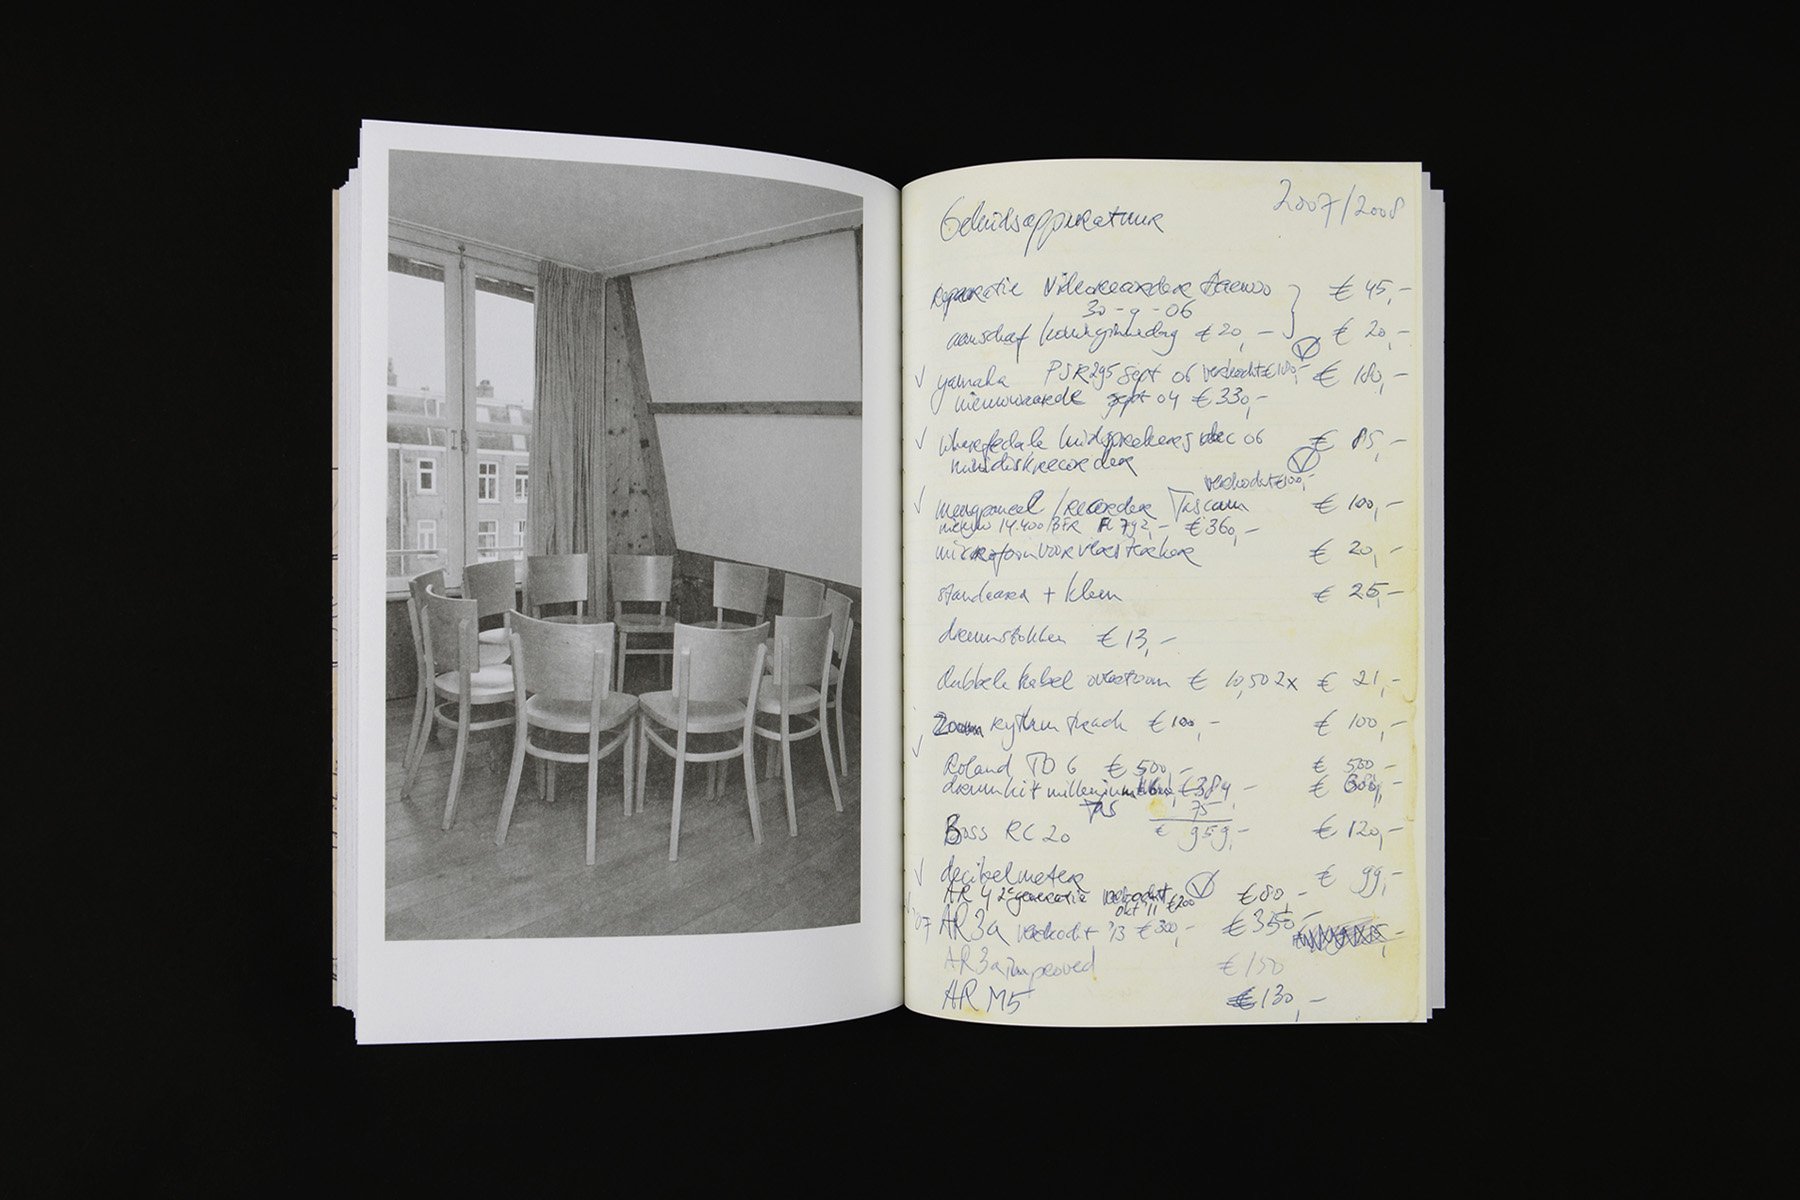 2007/2008
Geluidsapparatuur
reparatie Videorecorder Daewoo € 45,-
30-9-06
aanschaf koninginnedag € 20,- € 20,-
✓ yamaha PSR295 sept 06 verkocht € 180,- € 180,-
nieuwwaarde sept 04 € 330,-
✓ wharfedale luidsprekers dec 06 € 85,-
minidiskrecorder
verkocht €100,-
✓ mengpaneel /recorder Tascam € 100,-
€ 360,-
microfoon voor versterker € 20,-
standaard + klem € 25,-
drumstokken € 13,-
dubbele kabel € 10,50 2x € 21,-
Zoom rythm track € 100,- € 100,-
✓
Roland TD 6 € 500,- € 500,-
drumkit millenium € 384,-
75
€ 959,-
Boss RC 20 € 120,-
✓ decibelmeter € 99,-
AR 4 2e generatie verkocht okt '11 €200 € 80,-
AR3a verkocht '13 € 300,- € 350,-
AR3a improved € 150
AR M5 € 130,-